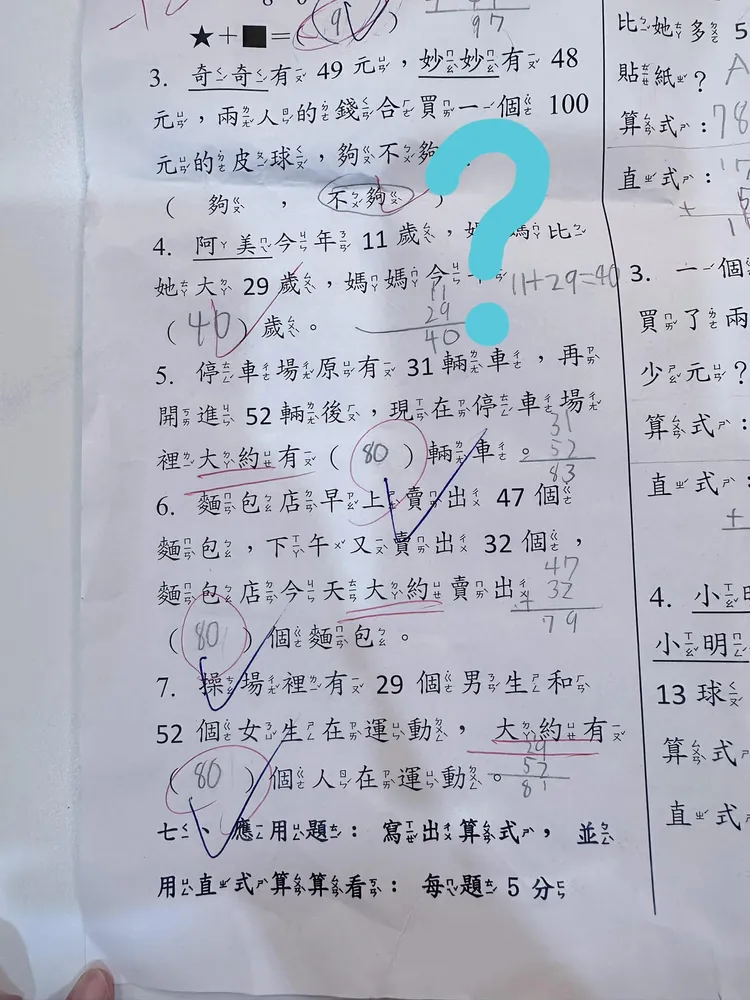 97
★＋■＝( 9 )
3. 奇奇有 49 元，妙妙有 48
元，兩人的錢合買一個 100
元的皮球，夠不夠
( 夠 ， 不夠 )
4. 阿美今年 11 歲，媽媽比
她大 29 歲，媽媽今
11+29=40
11
29
( 40 ) 歲。
40
5. 停車場原有 31 輛車，再
開進 52 輛後，現在停車場
31
裡大約有 ( 80 ) 輛車。
52
83
6. 麵包店早上賣出 47 個
麵包，下午又賣出 32 個，
47
麵包店今天大約賣出
+ 32
79
( 80 ) 個麵包。
7. 操場裡有 29 個男生和
52 個女生在運動，大約有
29
52
( 80 ) 個人在運動。
81
七、應用題：寫出算式，並
用直式算算看：每題 5 分
比她多 5
貼紙？ A
算式：78
直式：17
+
3. 一個
買了兩
少元？
算式：
直式
+
4. 小明
小明
13 球
算式
直式